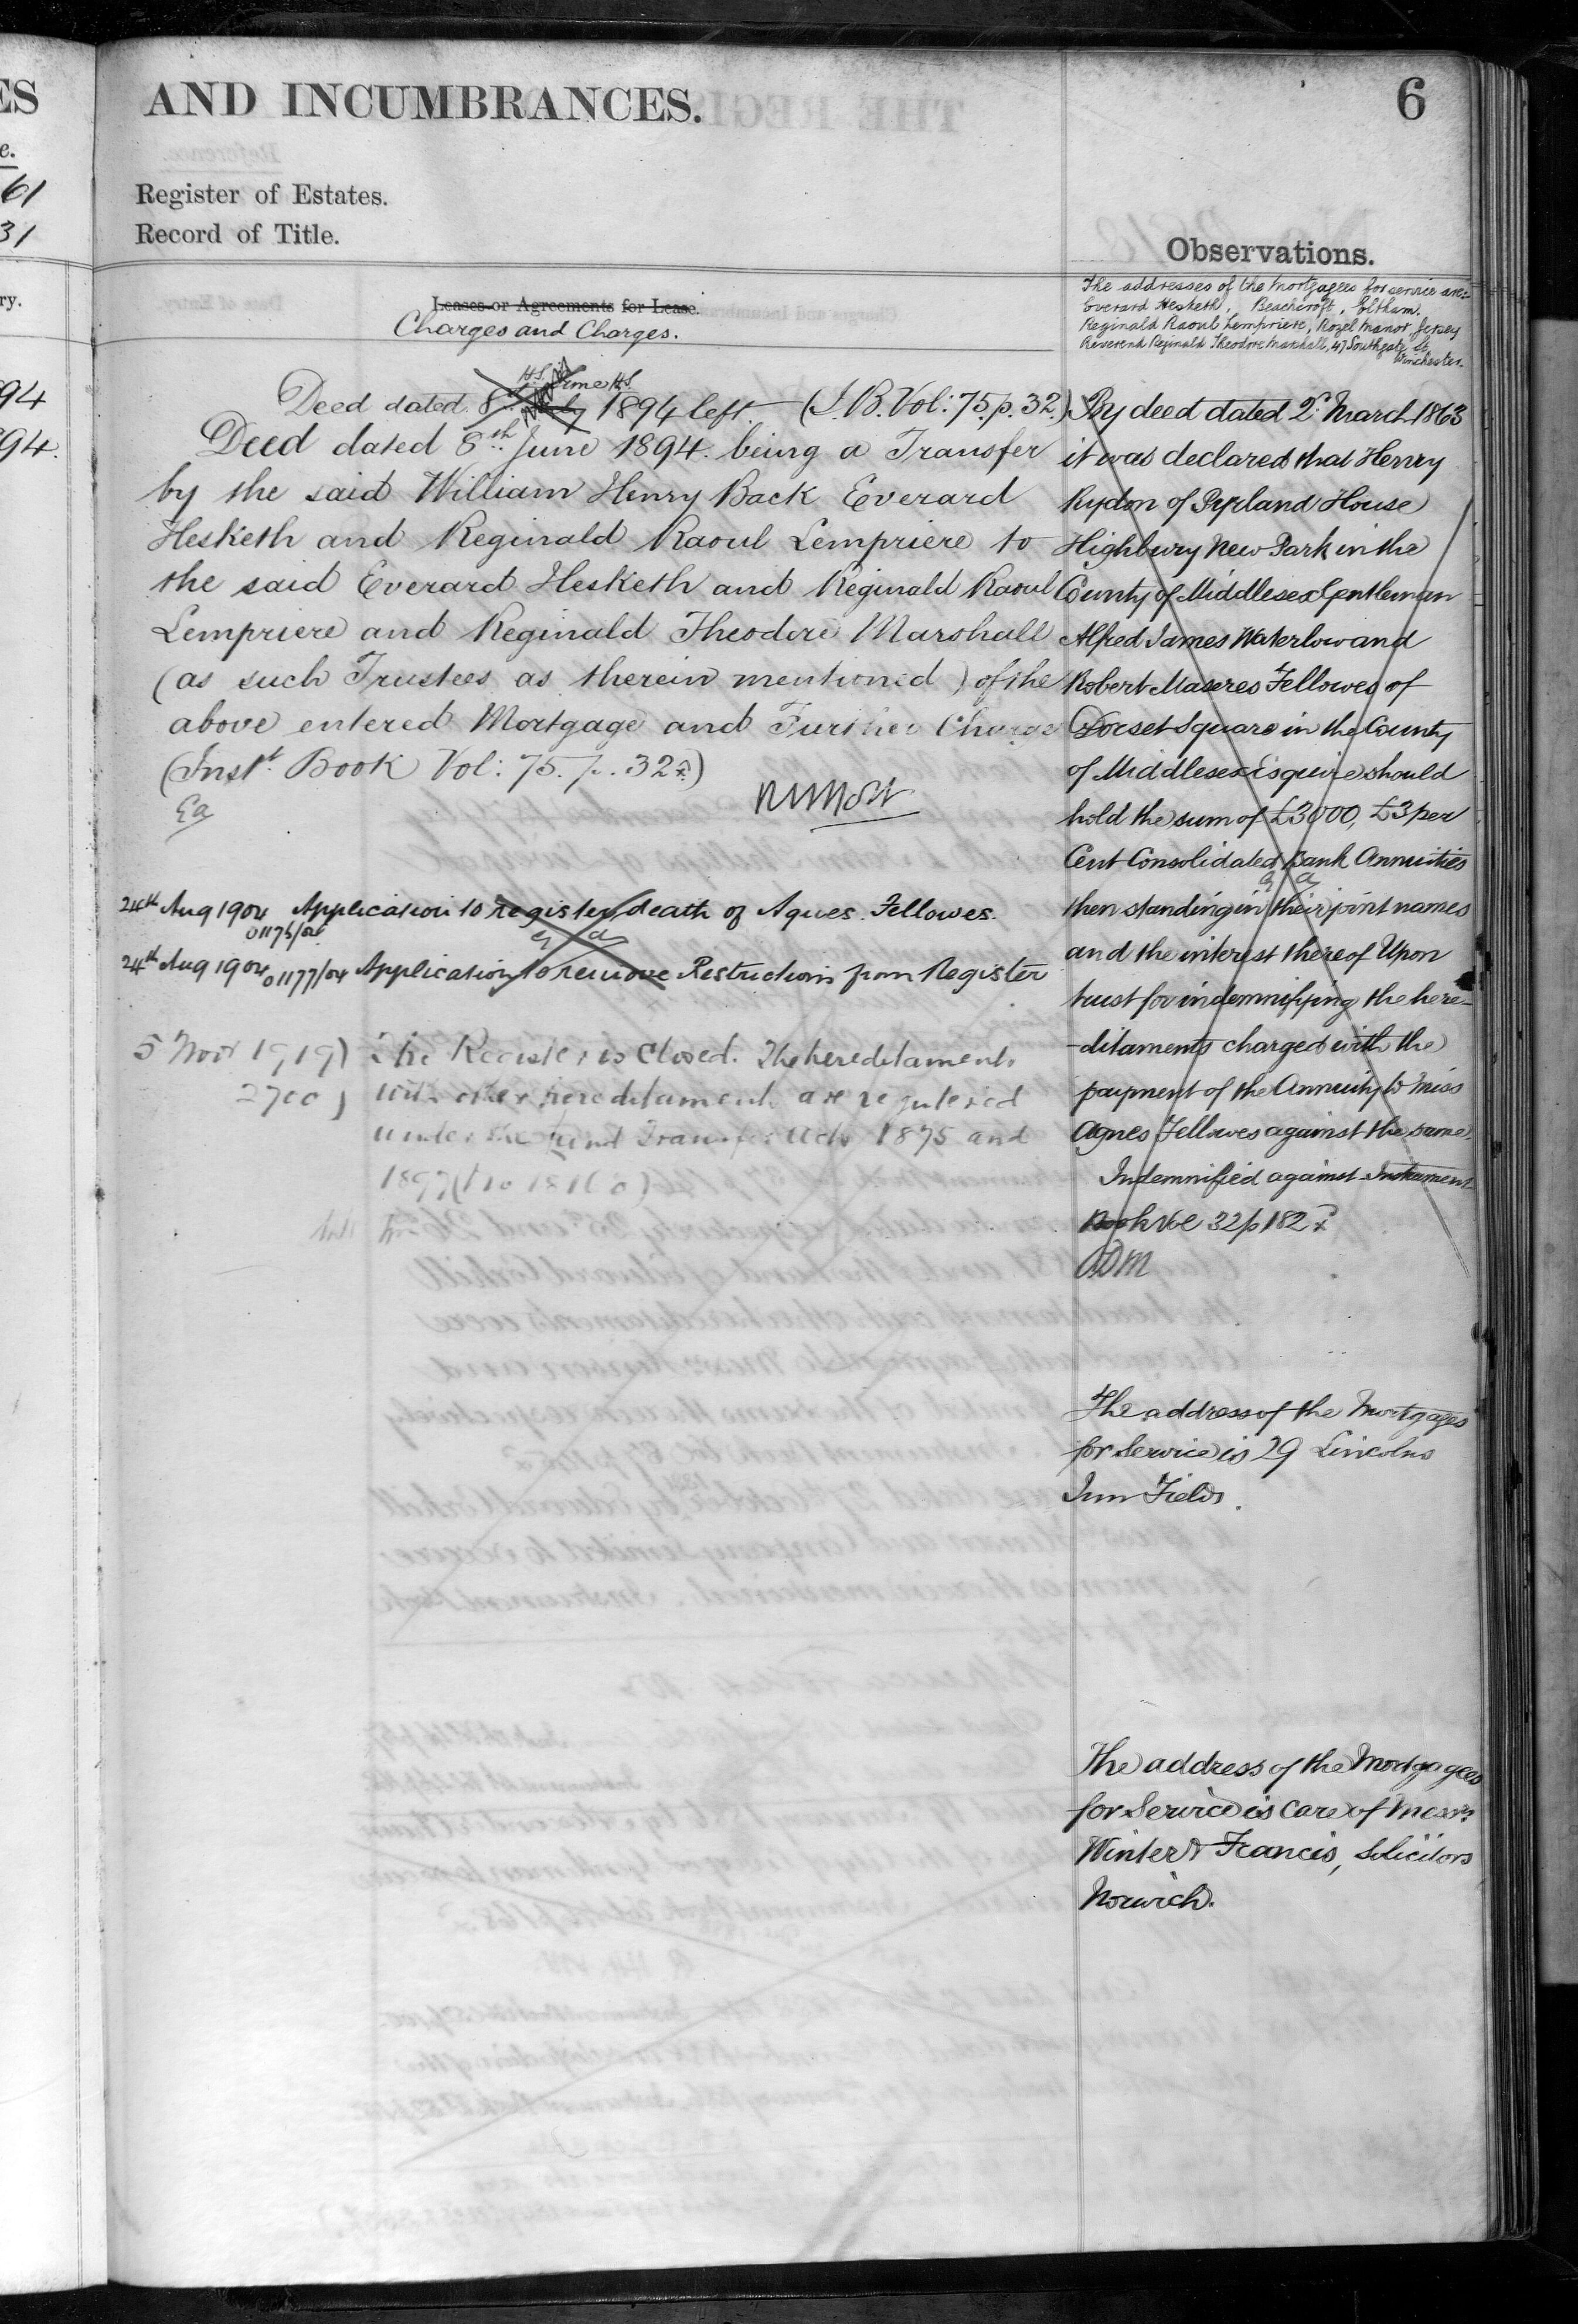 ES
e.
61
31
ry.
94
94.
AND INCUMBRANCES.
6
Register of Estates.
Record of Title.
Leases or Agreements for Lease.
Charges and Charges.
H.S. June H.S.
Deed dated 8th July 1894 left (I.B. Vol: 75. p. 32.)
Deed dated 8th June 1894. being a Transfer
by the said William Henry Back Everard
Hesketh and Reginald Raoul Lempriere to
the said Everard Hesketh and Reginald Raoul
Lempriere and Reginald Theodore Marshall
(as such Trustees as therein mentioned) of the
above entered Mortgage and Further Charge
(Inst. Book Vol: 75. p. 32)
24th Aug 1904 Application to register death of Agnes Fellowes.
24th Aug 1904 01177/04 Application to remove Restrictions from Register
5 Nov 1919) The Register is Closed. The hereditaments
2700) with other hereditaments are registered
under the Land Transfer Acts 1875 and
1897
Observations.
The addresses of the Mortgagees for service are:-
Everard Hesketh, Beachcroft, Eltham.
Reginald Raoul Lempriere, Rozel Manor Jersey
Reverend Reginald Theodore Marshall, 47 Southgate St
Winchester.
By deed dated 2d March 1863
it was declared that Henry
Rydon of Pyrland House
Highbury New Park in the
County of Middlesex Gentleman
Alfred James Waterlow and
Robert Maseres Fellowes of
Dorset Square in the County
of Middlesex Esquire should
hold the sum of £3000, £3 per
Cent Consolidated Bank Annuities
then standing in their joint names
and the interest thereof Upon
trust for indemnifying the here-
-ditaments charged with the
payment of the Annuity to Miss
Agnes Fellowes against the same.
Indemnified against Instrument
Book Vol 32 p 182
ADM
The address of the Mortgagees
for Service is 29 Lincolns
Inn Fields.
The address of the Mortgagees
for Service is care of Messrs
Winter & Francis, Solicitors
Norwich.